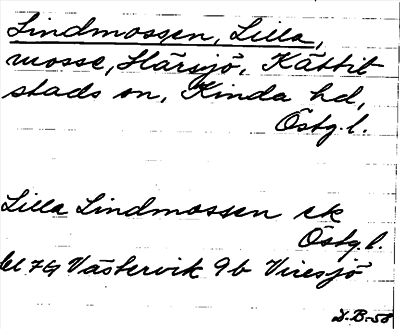 Lindmossen, Lilla,
mosse, Härsjö, Kättil
stads sn, Kinda hd,
Östg.l.
Lilla Lindmossen ek
Östg.l.
bl 7G Västervik 9b Viresjö
D.B-58